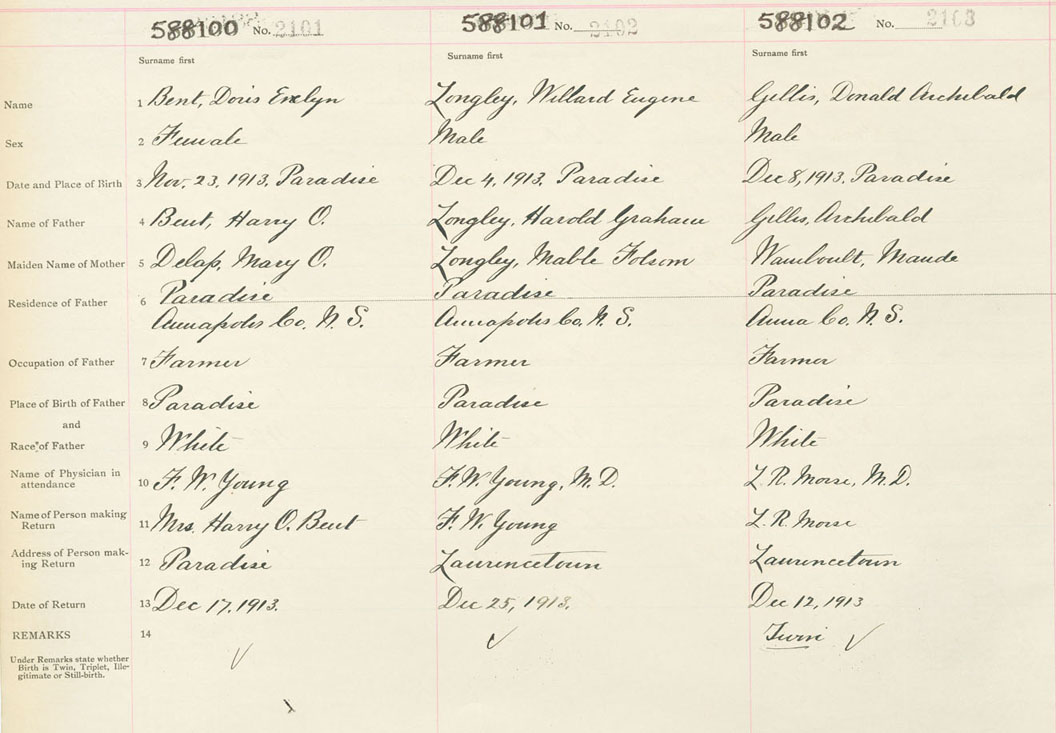 588100 No. 2101 588101 No. 2102 588102 No. 2103
Surname first Surname first Surname first
Name 1 Bent, Doris Evelyn Longley, Willard Eugene Gillis, Donald Archibald
Sex 2 Female Male Male
Date and Place of Birth 3 Nov. 23, 1913. Paradise Dec 4, 1913. Paradise Dec 8, 1913. Paradise
Name of Father 4 Bent, Harry O. Longley, Harold Graham Gillis, Archibald
Maiden Name of Mother 5 Delap, Mary O. Longley, Mable Folsom Wamboult, Maude
Residence of Father 6 Paradise Paradise Paradise
Annapolis Co. N. S. Annapolis Co. N. S. Anna Co. N. S.
Occupation of Father 7 Farmer Farmer Farmer
Place of Birth of Father 8 Paradise Paradise Paradise
and
Race of Father 9 White White White
Name of Physician in
attendance 10 F. W. Young F. W. Young, M. D. L. R. Morse, M. D.
Name of Person making
Return 11 Mrs. Harry O. Bent F. W. Young L. R. Morse
Address of Person mak-
ing Return 12 Paradise Laurencetown Laurencetown
Date of Return 13 Dec 17, 1913. Dec 25, 1913. Dec 12, 1913
REMARKS 14 Twin
Under Remarks state whether
Birth is Twin, Triplet, Ille-
gitimate or Still-birth.